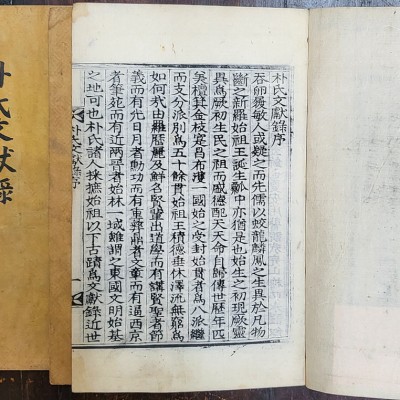 朴氏文獻錄序
吞卵履敏人或疑之而先儒以蛟龍麟鳳之生異於凡物
斷之新羅始祖王誕生瓠中亦猶是也始生之初現厥靈
異爲厥初生民之祖而盛德配天天命自歸傳世歷年匹
美檀箕金枝寔昌布濩一國始之受封始貫者爲八派繼
而支分派別爲五十餘貫始祖王積德垂休澤流無窮爲
如何哉由羅歷麗及鮮名賢輩出道學而有講賢聖者節
義而有光日月者勳功而有重彝鼎者文章而有逼西京
者筆苑而有近兩晉者始林一域雖謂之東國文明始基
之地可也朴氏諸人採摭始祖以下古蹟爲文獻錄近世
朴氏文獻錄序
一
朴氏文獻錄